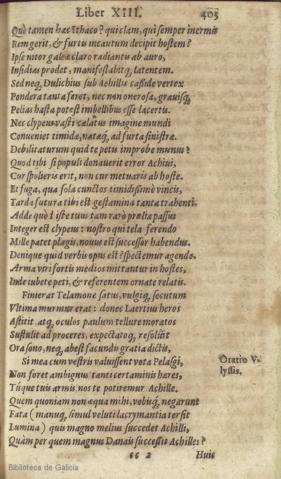 Liber XIII. 403
Quò tamen hæc Ithaco? qui clam, qui semper inermis
Rem gerit, & furtis incautum decipit hostem?
Ipse nitor galeæ claro radiantis ab auro,
Insidias prodet, manifestabitq́; latentem.
Sed neq; Dulichius sub Achillis casside vertex
Pondera tanta feret, nec non onerosa, grauisq́;
Pelias hasta potest imbellibus esse lacertis.
Nec clypeus vasti cælatus imagine mundi
Conueniet timidæ, natæq́; ad furta sinistræ.
Debilitaturum quid te petis improbe munus?
Quod tibi si populi donauerit error Achiui,
Cur spolieris erit, non cur metuaris ab hoste.
Et fuga, qua sola cunctos timidissime vincis,
Tarda futura tibi est gestamina tanta trahenti.
Adde quòd iste tuus tam rarò prælia passus
Integer est clypeus: nostro qui tela ferendo
Mille patet plagis, nouus est successor habendus.
Denique quid verbis opus est? spectemur agendo.
Arma viri fortis medios mittantur in hostes,
Inde iubete peti, & referentem ornate relatis.
Finierat Telamone satus, vulgiq́; secutum
Vltima murmur erat: donec Laertius heros
Astitit. atq; oculos paulum tellure moratos
Sustulit ad proceres, expectatoq́; resoluit
Ora sono, neq; abest facundis gratia dictis.
Si mea cum vestris valuissent vota Pelasgi,
Oratio V-
lyssis.
Non foret ambiguus tanti certaminis hæres,
Tuque tuis armis, nos te potiremur Achille.
Quem quoniam non æqua mihi, vobisq́; negarunt
Fata (manuq́; simul veluti lacrymantia tersit
Lumina) quis magno melius succedet Achilli,
Quàm per quem magnus Danais successit Achilles?
cc 2 Huic
Biblioteca de Galicia